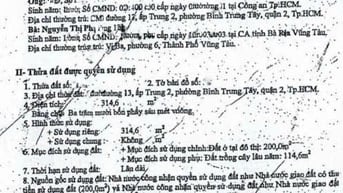 Ông:
Sinh năm: Số CMND: cấp ngày tại Công an Tp.HCM.
Địa chỉ thường trú: đường 13, ấp Trung 2, phường Bình Trưng Tây, quận 2, Tp.HCM.
Bà: Nguyễn Thị
Sinh năm: Số CMND: cấp ngày tại CA tỉnh Bà Rịa Vũng Tàu.
Địa chỉ thường trú: phường 6, Thành Phố Vũng Tàu.
II- Thửa đất được quyền sử dụng
1. Thửa đất số: 2. Tờ bản đồ số:
3. Địa chỉ thửa đất: đường 13, ấp Trung 2, phường Bình Trưng Tây, quận 2, Tp.HCM.
4. Diện tích: 314,6 m²
Bằng chữ: Ba trăm mười bốn phẩy sáu mét vuông.
5. Hình thức sử dụng:
+ Sử dụng riêng: 314,6 m²
+ Sử dụng chung: Không m²
6. Mục đích sử dụng đất: +Mục đích sử dụng chính: Đất ở tại đô thị: 200,0m²
+ Mục đích sử dụng phụ: Đất trồng cây lâu năm: 114,6m²
7. Thời hạn sử dụng đất: Lâu dài
8. Nguồn gốc sử dụng đất: Nhà nước công nhận quyền sử dụng đất như Nhà nước giao đất có thu
tiền sử dụng đất (200,0m²) và Nhà nước công nhận quyền sử dụng đất như Nhà nước